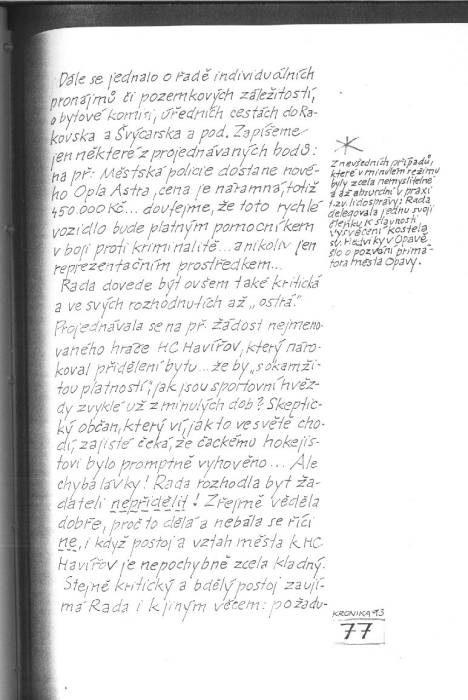 Dále se jednalo o řadě individuálních
pronájmů či pozemkových záležitostí,
o bytové komisi, úředních cestách do Ra-
kovska a Švýcarska a pod. Zapíšeme
jen některé z projednávaných bodů:
na př. Městská policie dostane nové-
ho Opla Astra, cena je náramná, totiž
450.000 Kč... doufejme, že toto rychlé
vozidlo bude platným pomocníkem
v boji proti kriminalitě... a nikoliv jen
reprezentačním prostředkem...
Rada dovede být ovšem také kritická
a ve svých rozhodnutích až „ostrá."
Projednávala se na př. žádost nejmeno-
vaného hráče HC Havířov, který náro-
koval přidělení bytu... že by „s okamži-
tou platností", jak jsou sportovní hvěz-
dy zvyklé už z minulých dob? Skeptic-
ký občan, který ví, jak to ve světě cho-
dí, zajisté čeká, že čackému hokejis-
tovi bylo promptně vyhověno... Ale
chyba lávky! Rada rozhodla byt ža-
dateli nepřidělit! Zřejmě věděla
dobře, proč to dělá a nebála se říci
ne, i když postoj a vztah města k HC
Havířov je nepochybně zcela kladný.
Stejně kritický a bdělý postoj zaují-
má Rada i k jiným věcem: požadu-
Z nevšedních případů,
které v minulém režimu
byly zcela nemyslitelné
a až absurdní v praxi
t.zv. lidosprávy: Rada
delegovala jednu svoji
členku k slavnosti
vysvěcení kostela
sv. Hedviky v Opavě,
šlo o pozvání primá-
tora města Opavy.
KRONIKA 93
77